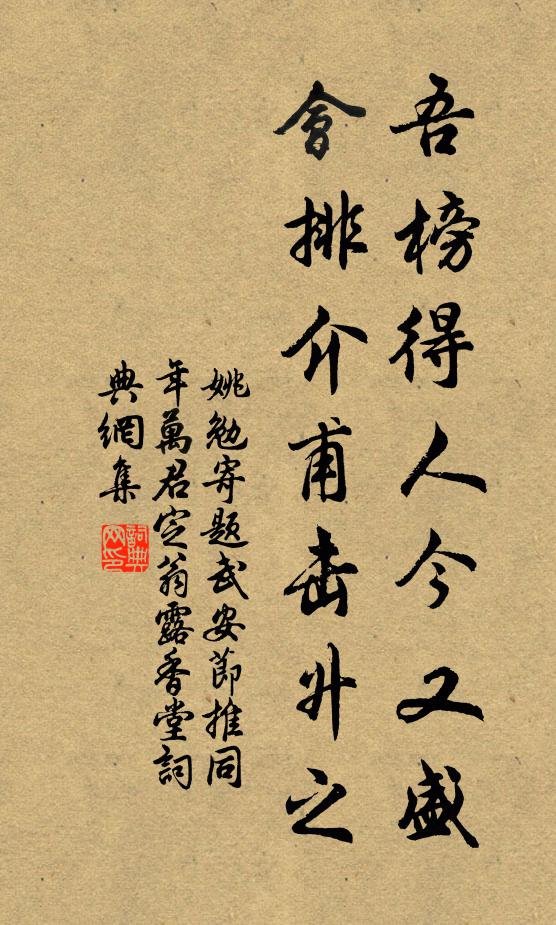 吾榜得人今又盛
會排介甫击升之
姚勉寄題武安節推同
年萬君定翁露香堂詞
典網集
詞典
网印